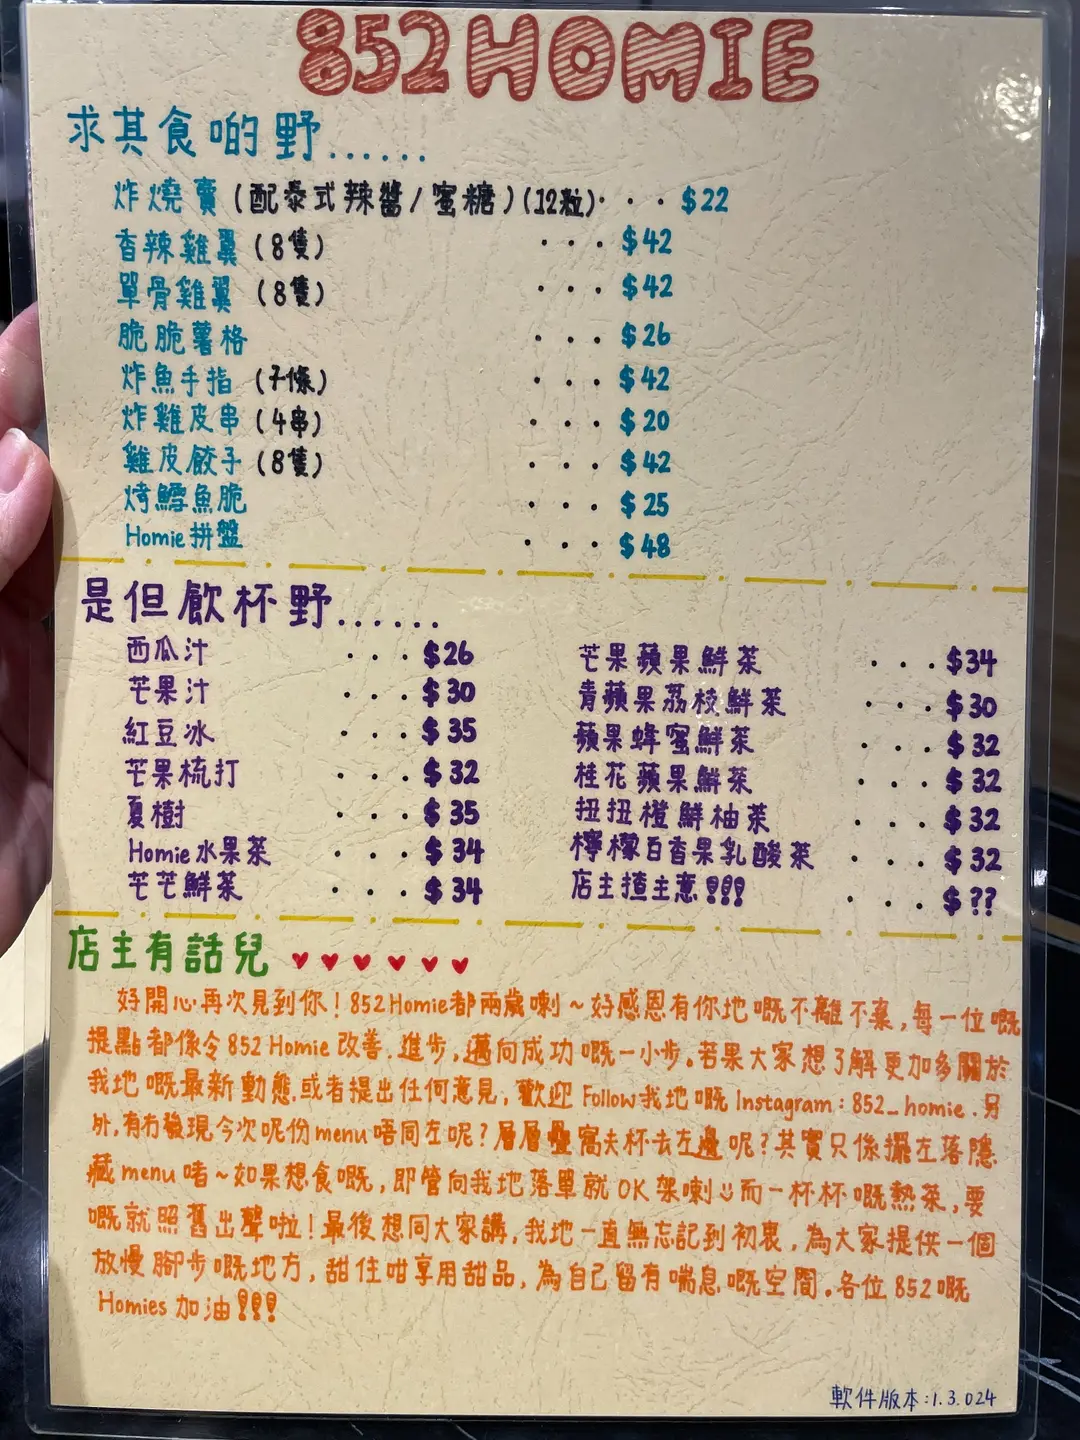 852HOMIE
求其食啲野......
炸燒賣(配泰式辣醬/蜜糖)(12粒)...$22
香辣雞翼(8隻)...$42
單骨雞翼(8隻)...$42
脆脆薯格...$26
炸魚手指(7條)...$42
炸雞皮串(4串)...$20
雞皮餃子(8隻)...$42
烤鱈魚脆...$25
Homie拼盤...$48
是但飲杯野......
西瓜汁...$26
芒果汁...$30
紅豆冰...$35
芒果梳打...$32
夏樹...$35
Homie水果茶...$34
芒芒鮮茶...$34
芒果蘋果鮮茶...$34
青蘋果荔枝鮮茶...$30
蘋果蜂蜜鮮茶...$32
桂花蘋果鮮茶...$32
扭扭橙鮮柚茶...$32
檸檬百香果乳酸茶...$32
店主揸主意!!!...$??
店主有話兒♥♥♥♥♥♥
好開心再次見到你!852Homie都兩歲喇~好感恩有你地嘅不離不棄,每一位嘅
提點都像令852 Homie改善.進步,邁向成功嘅一小步。若果大家想了解更加多關於
我地嘅最新動態.或者提出任何意見,歡迎Follow我地嘅Instagram:852_homie.另
外,有冇發現今次呢份menu唔同左呢?層層疊窩夫杯去左邊呢?其實只係擺左落隱
藏menu啫~如果想食嘅,即管向我地落單就OK架喇ツ而一杯杯嘅熱茶,要
嘅就照舊出聲啦!最後想同大家講,我地一直無忘記到初衷,為大家提供一個
放慢腳步嘅地方,甜住咁享用甜品,為自己留有喘息嘅空間。各位852嘅
Homies加油!!!
軟件版本:1.3.024